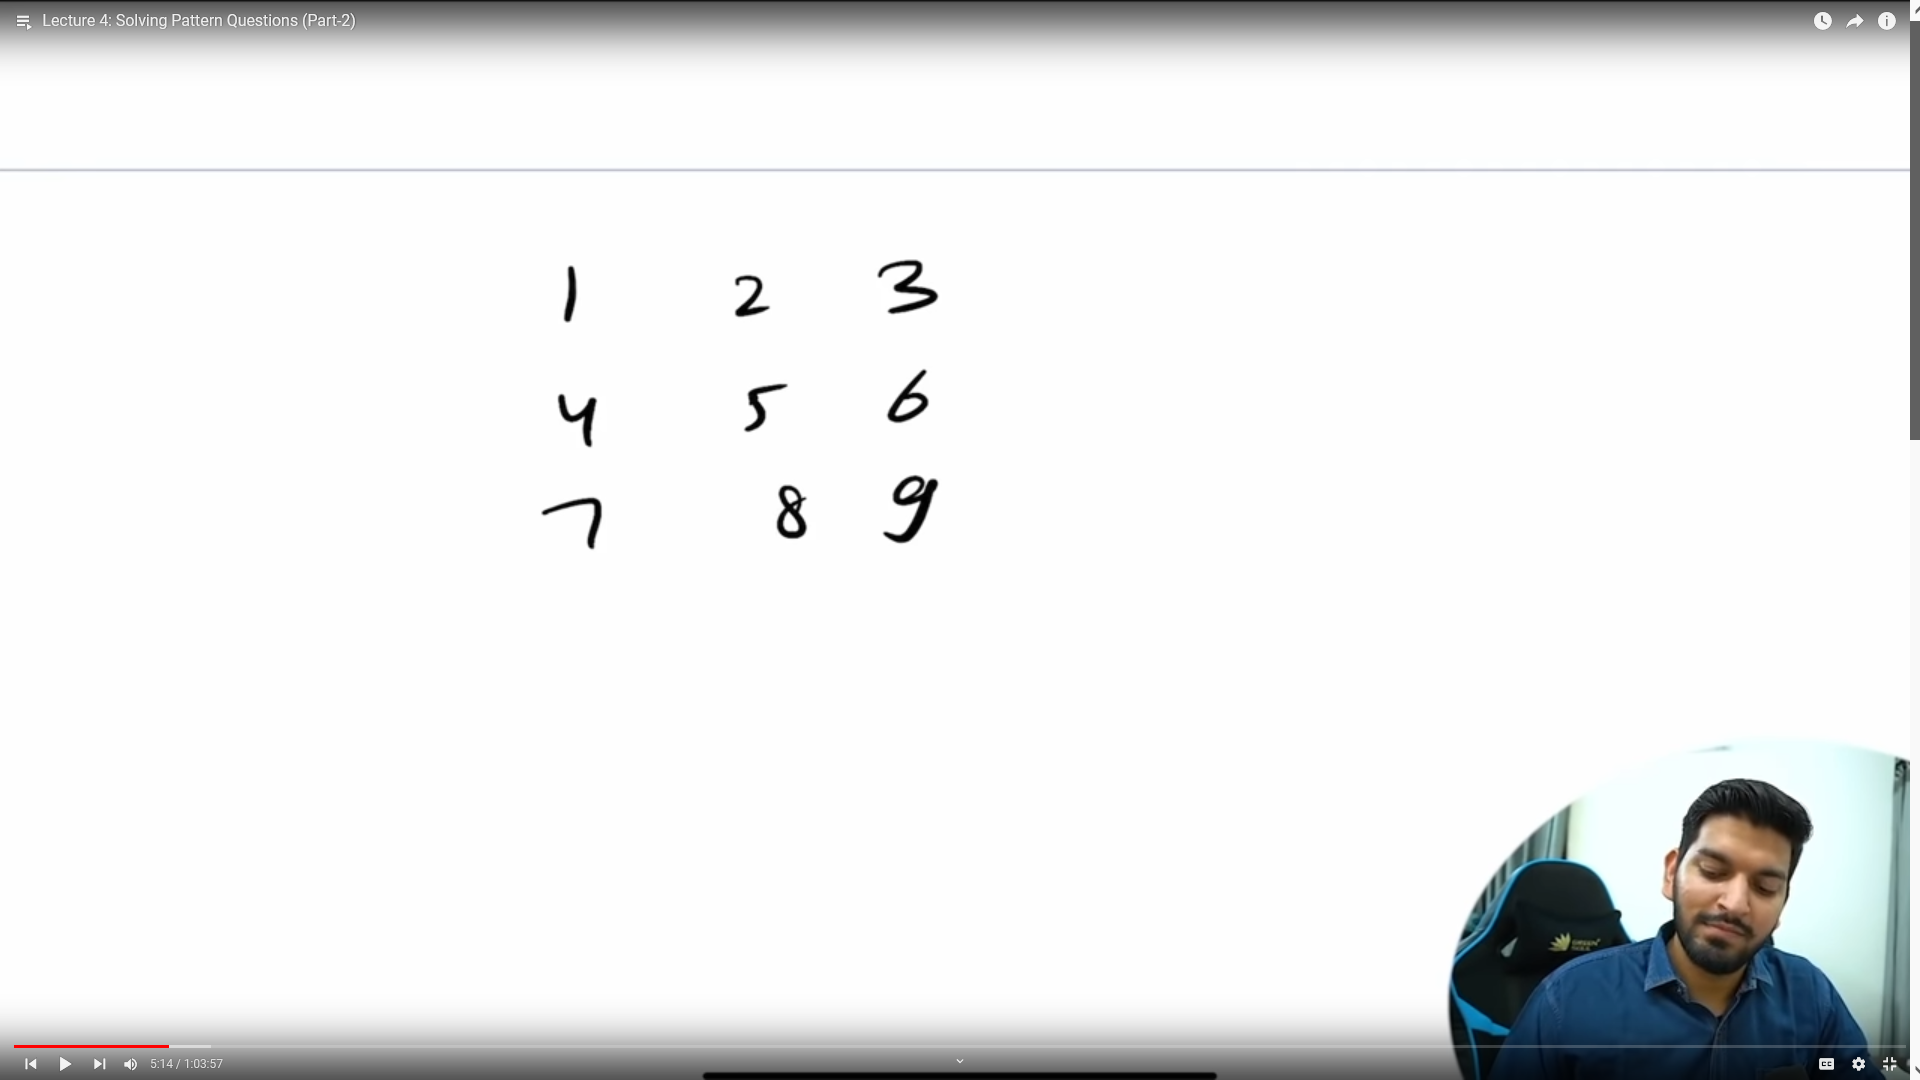 Lecture 4: Solving Pattern Questions (Part-2)
1 2 3
4 5 6
7 8 9
GREEN
5:14 / 1:03:57
CC